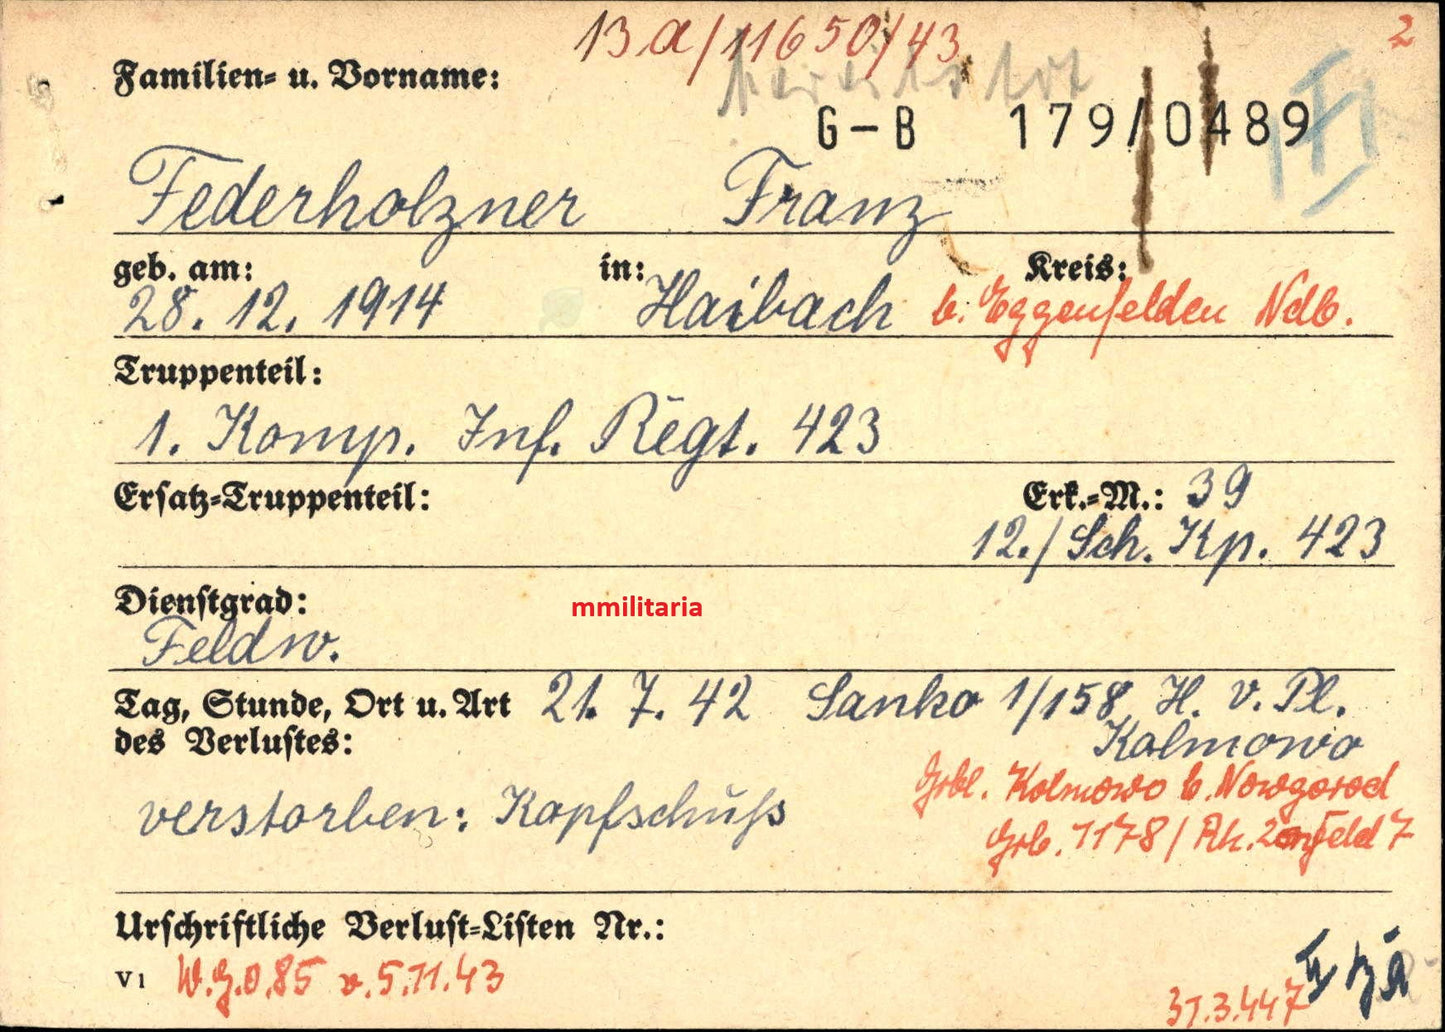 13a/11650/43 2
Familien- u. Vorname:
G-B 179/0489
Federholzner Franz
geb. am: in: Kreis:
28. 12. 1914 Haibach b. Eggenfelden Ndb.
Truppenteil:
1. Komp. Inf. Regt. 423
Ersatz-Truppenteil: Erk.-M.: 39
12./Sch. Kp. 423
Dienstgrad:
mmilitaria
Feldw.
Tag, Stunde, Ort u. Art 21. 7. 42 Sanko 1/158 H. v. Pl.
des Verlustes: Kolmowo
Grbl. Kolmowo b. Nowgorod
verstorben: Kopfschuß
Grb. 1178/
Urschriftliche Verlust-Listen Nr.:
V1 W.G.O.85 v. 5.11.43